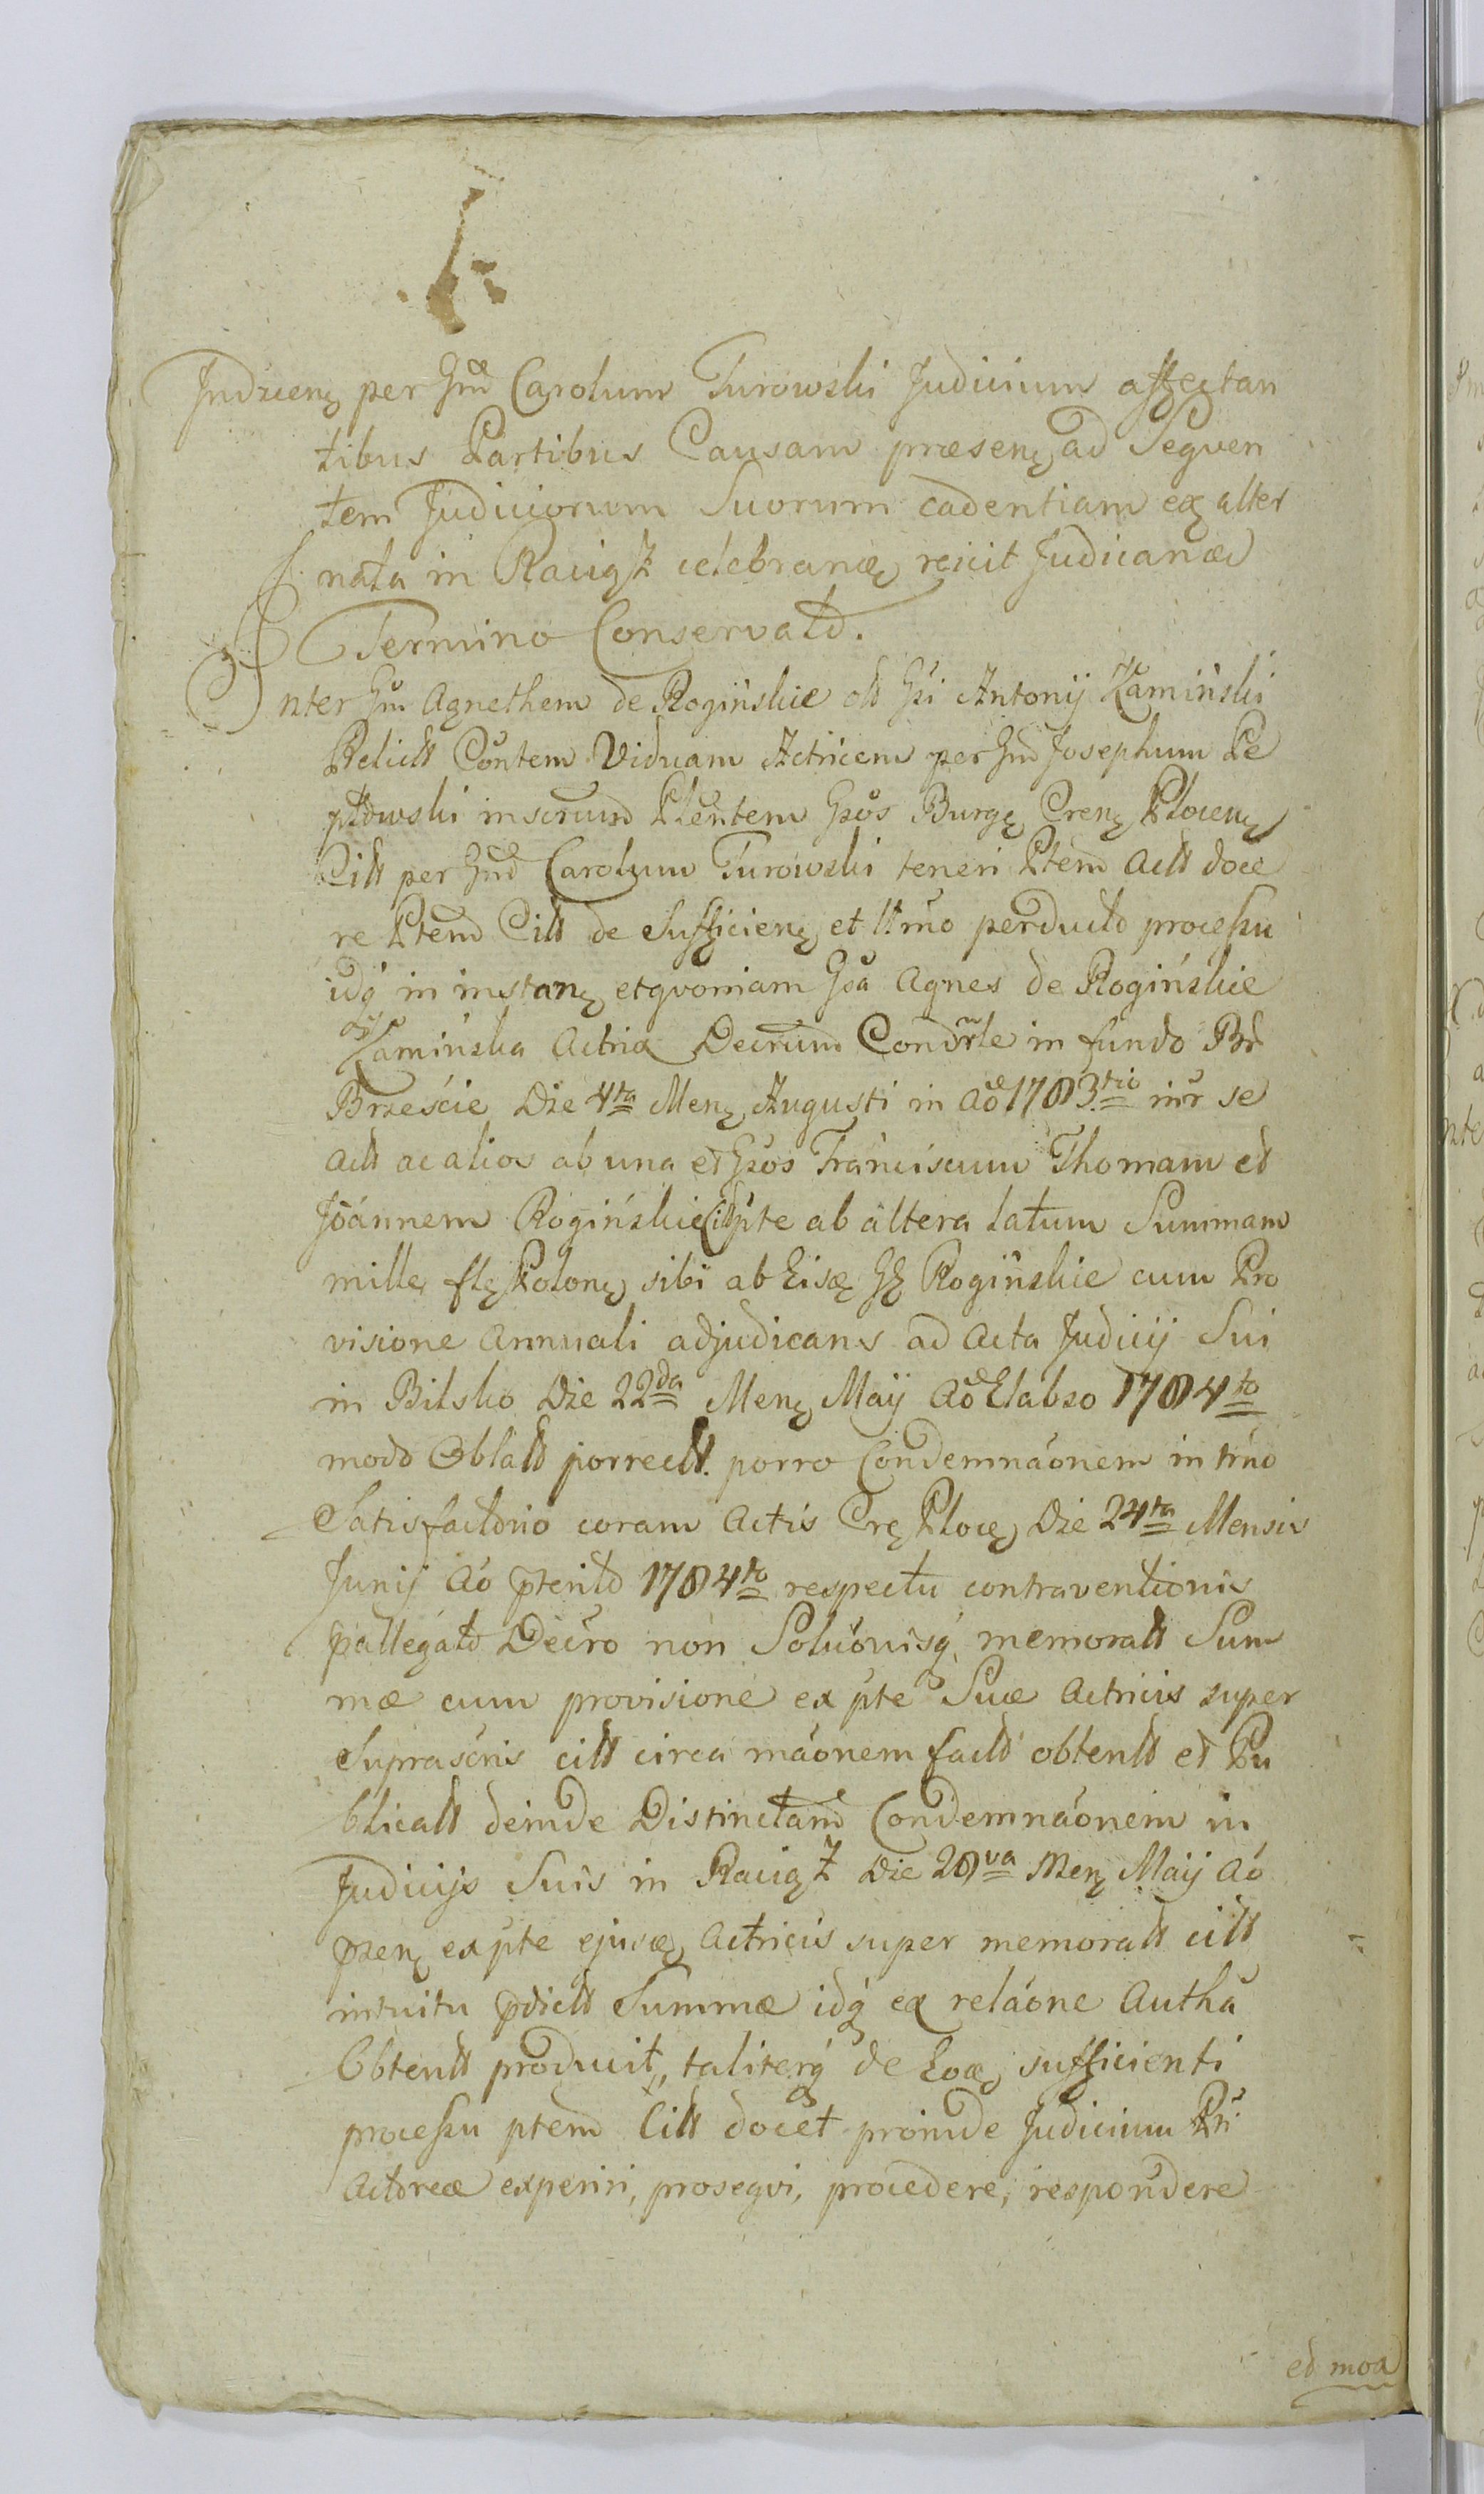 Indicen per Gnd Carolum Turowski Judicium affectan
tibus Partibus Causam præsen ad Seqven
tem Judiciorum Suorum cadentiam ex alter
nata in Raciąż celebranæ reicit Judicanæ
Termino Conservato.
Inter Gm Agnethem de Rogińskie olt Gsi Antonij Kamiński
Relictt Contem Viduam Actricem per Gnd Josephum Pe
ptowski Pltentem Gsos Burg Cren Plocen
Citt per Gnd Carolum Turowski teneri Ptem Actt doce
re Ptem Citt de Sufficien et ltimo perducto processu
idq in instan etqvoniam Gsa Agnes de Rogińskie
Kamińska Actrix Decrum Condrle in fundo Br
Brzeście Die 4ta Men Augusti in Ao 1783tio intr se
Actt ac alios ab una et Gsos Franciscum Thomam et
Joannem Rogińskie Citt pte ab altera latum Summam
mille fl Polon sibi ab Eisæ GG Rogińskie cum Pro
visione Annuali adjudicans ad Acta Judicij Sui
in Bilsko Die 22da Men Maij Ao Elabso 1784to
modo Oblatt porrectt. porro Condemnaonem in trno
Satisfactorio coram Actis Cre Ploce Die 24ta Mensis
Junij Ao pterito 1784to respectu contraventionis
pallegato Decro non Soluonisq memoratt Sum
mæ cum provisione ex pte Suæ Actricis super
Suprascris citt circa maonem factt obtentt et Pu
blicatt deinde Distinctam Condemnaonem in
Judicijs Suis in Raciąż Die 28va Men Maij Ao
psen ex pte ejusæ Actricis super memoratt citt
intuitu pdictt Summæ idq ex relaone Autha
Obtentt producit, taliterq de Eoæ sufficienti
processu ptem Citt docet proinde Judicium Pti
Actoreæ experiri, prosegvi, procedere, respondere
et moa